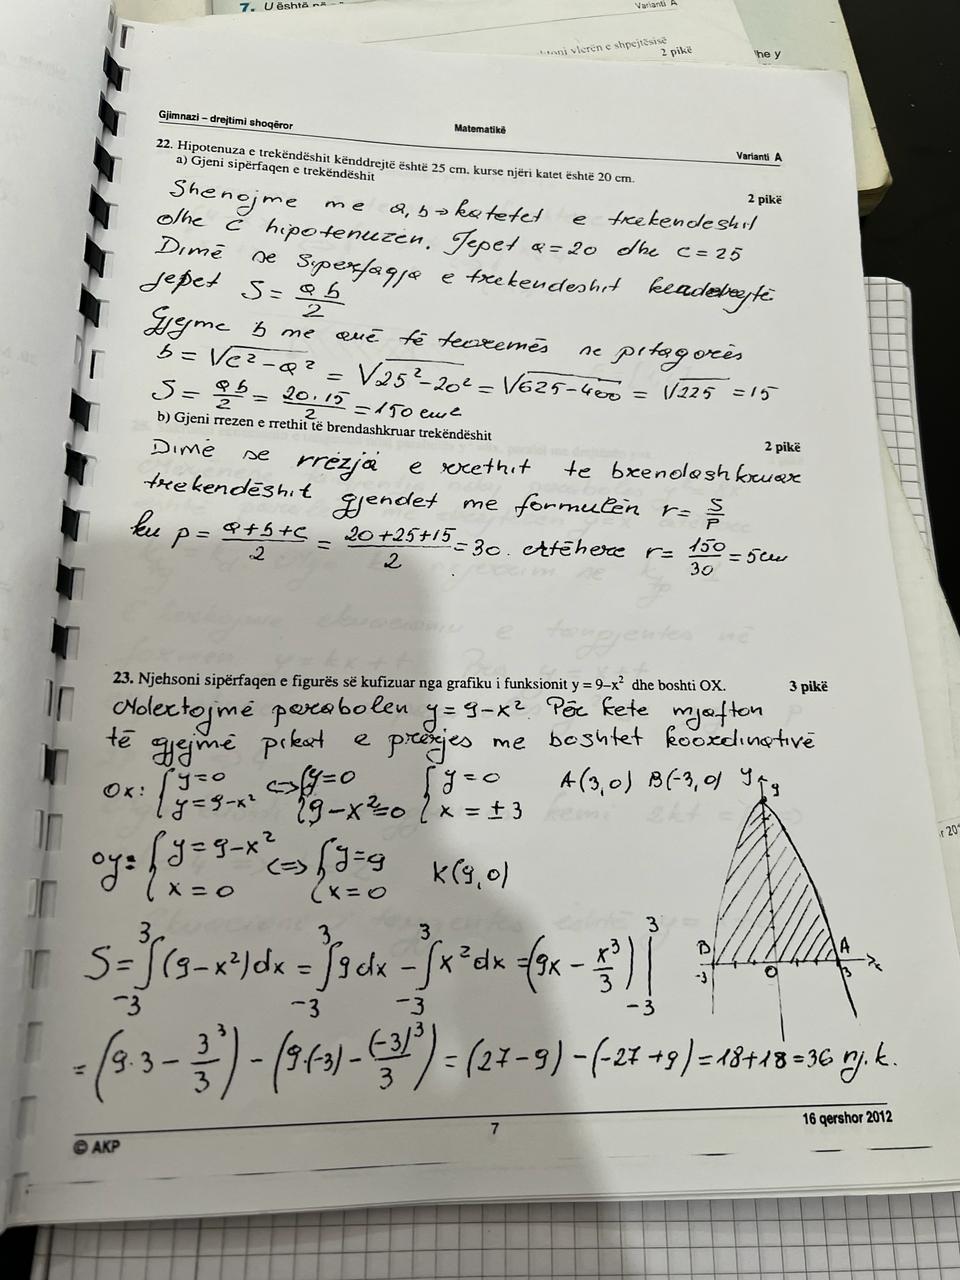 7. U është në
Varianti A
vlerën e shpejtësisë
2 pikë
he y
Gjimnazi – drejtimi shoqëror
Matematikë
Varianti A
22. Hipotenuza e trekëndëshit kënddrejtë është 25 cm. kurse njëri katet është 20 cm.
a) Gjeni sipërfaqen e trekëndëshit
2 pikë
Shenojme me a, b → katetet e trekendeshit
dhe c hipotenuzen. Jepet a = 20 dhe c = 25
Dimë se siperfaqja e trekendeshit kendedrejtë
jepet S = ab/2
Gjejme b me anë të teoremës se pitagorës
b = √c² – a² = √25² – 20² = √625 – 400 = √225 = 15
S = ab/2 = 20·15/2 = 150 cm²
b) Gjeni rrezen e rrethit të brendashkruar trekëndëshit
2 pikë
Dimë se rrezja e rrethit te brendashkruar
trekendëshit gjendet me formulën r = S/P
ku p = a+b+c/2 = 20+25+15/2 = 30. atëhere r = 150/30 = 5cm
23. Njehsoni sipërfaqen e figurës së kufizuar nga grafiku i funksionit y = 9–x² dhe boshti OX.
3 pikë
Ndertojmë parabolen y = 9 – x². Për kete mjafton
të gjejmë pikat e prerjes me boshtet koordinativë
Ox: { y = 0 y = 9 – x² <=> { y = 0 9 – x² = 0 { y = 0 x = ± 3 A(3,0) B(-3,0)
Oy: { y = 9 – x² x = 0 <=> { y = 9 x = 0 K(9,0)
y 9
B A
-3 O 3 x
S = ∫₋₃³ (9 – x²) dx = ∫₋₃³ 9 dx – ∫₋₃³ x² dx = (9x – x³/3) |₋₃³
= (9·3 – 3³/3) – (9·(-3) – (-3)³/3) = (27 – 9) – (-27 + 9) = 18 + 18 = 36 nj. k.
© AKP
7
16 qershor 2012